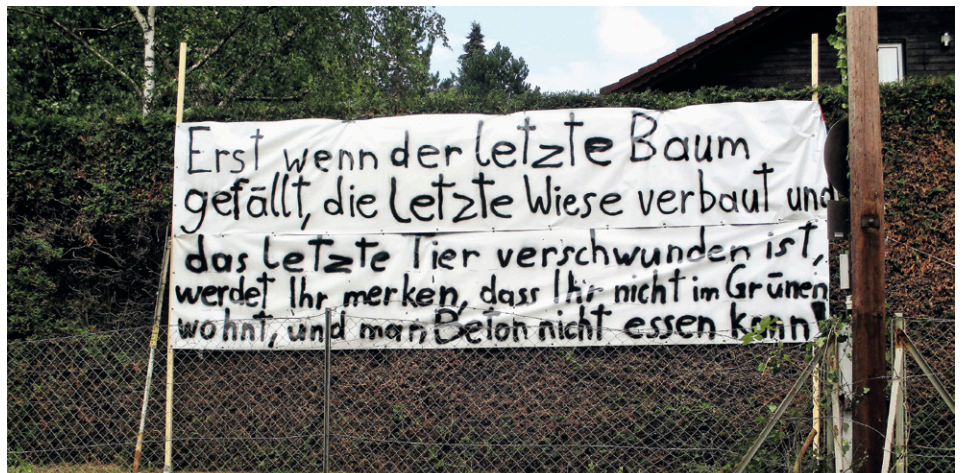 Erst wenn der letzte Baum
gefällt, die letzte Wiese verbaut und
das letzte Tier verschwunden ist,
werdet Ihr merken, dass Ihr nicht im Grünen
wohnt, und man Beton nicht essen kann!